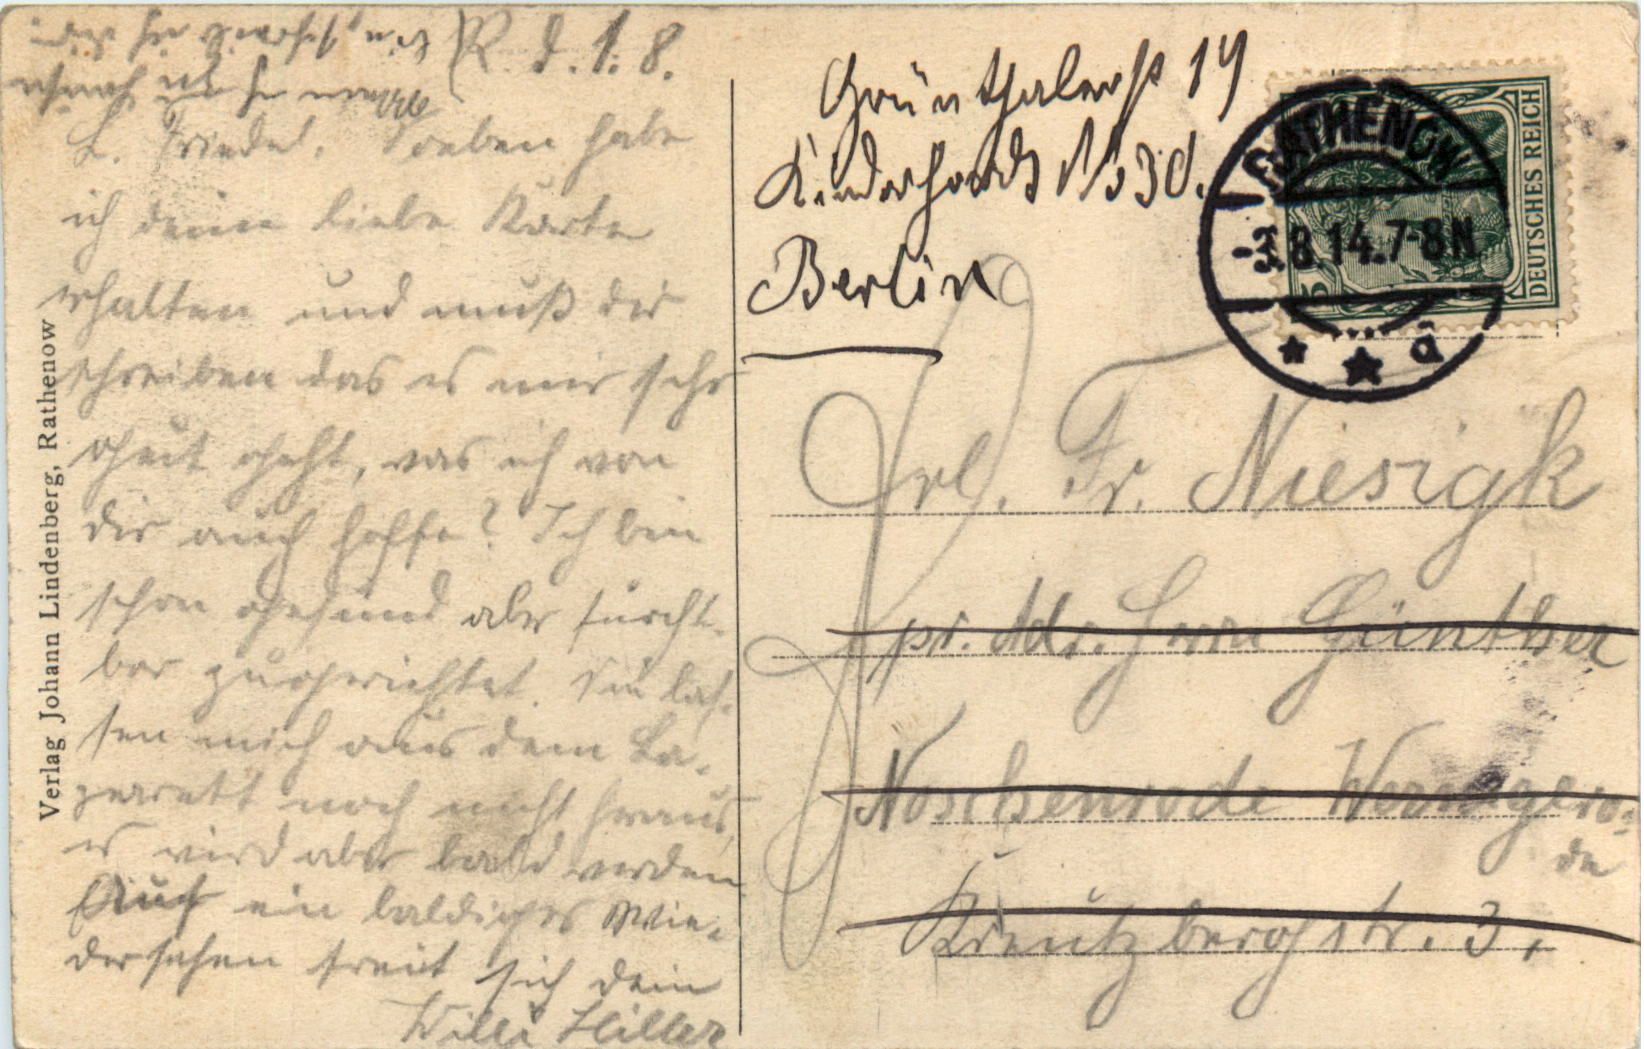 R. d. 1. 8.
L. Friedel. Soeben habe
ich deine liebe Karte
erhalten und muß dir
schreiben das es mir sehr
gut geht, was ich von
dir auch hoffe? Ich bin
schon gesund aber furcht-
bar zugerichtet. Sie las-
sen mich aus dem La-
zarett noch nicht heraus,
es wird aber bald werden
Auf ein baldiges Wie-
dersehen freut sich dein
Willi Hiller
Verlag Johann Lindenberg, Rathenow
Grünthalerst 14
Kinderhort
Berlin
RATHENOW
-3.8.14.7-8N
* * a
DEUTSCHES REICH
5
Frl. Fr. Niesigk
pr. Adr. Herrn Günther
Noschenrode Wernigero-
de
Kreutzbergstr. 3.